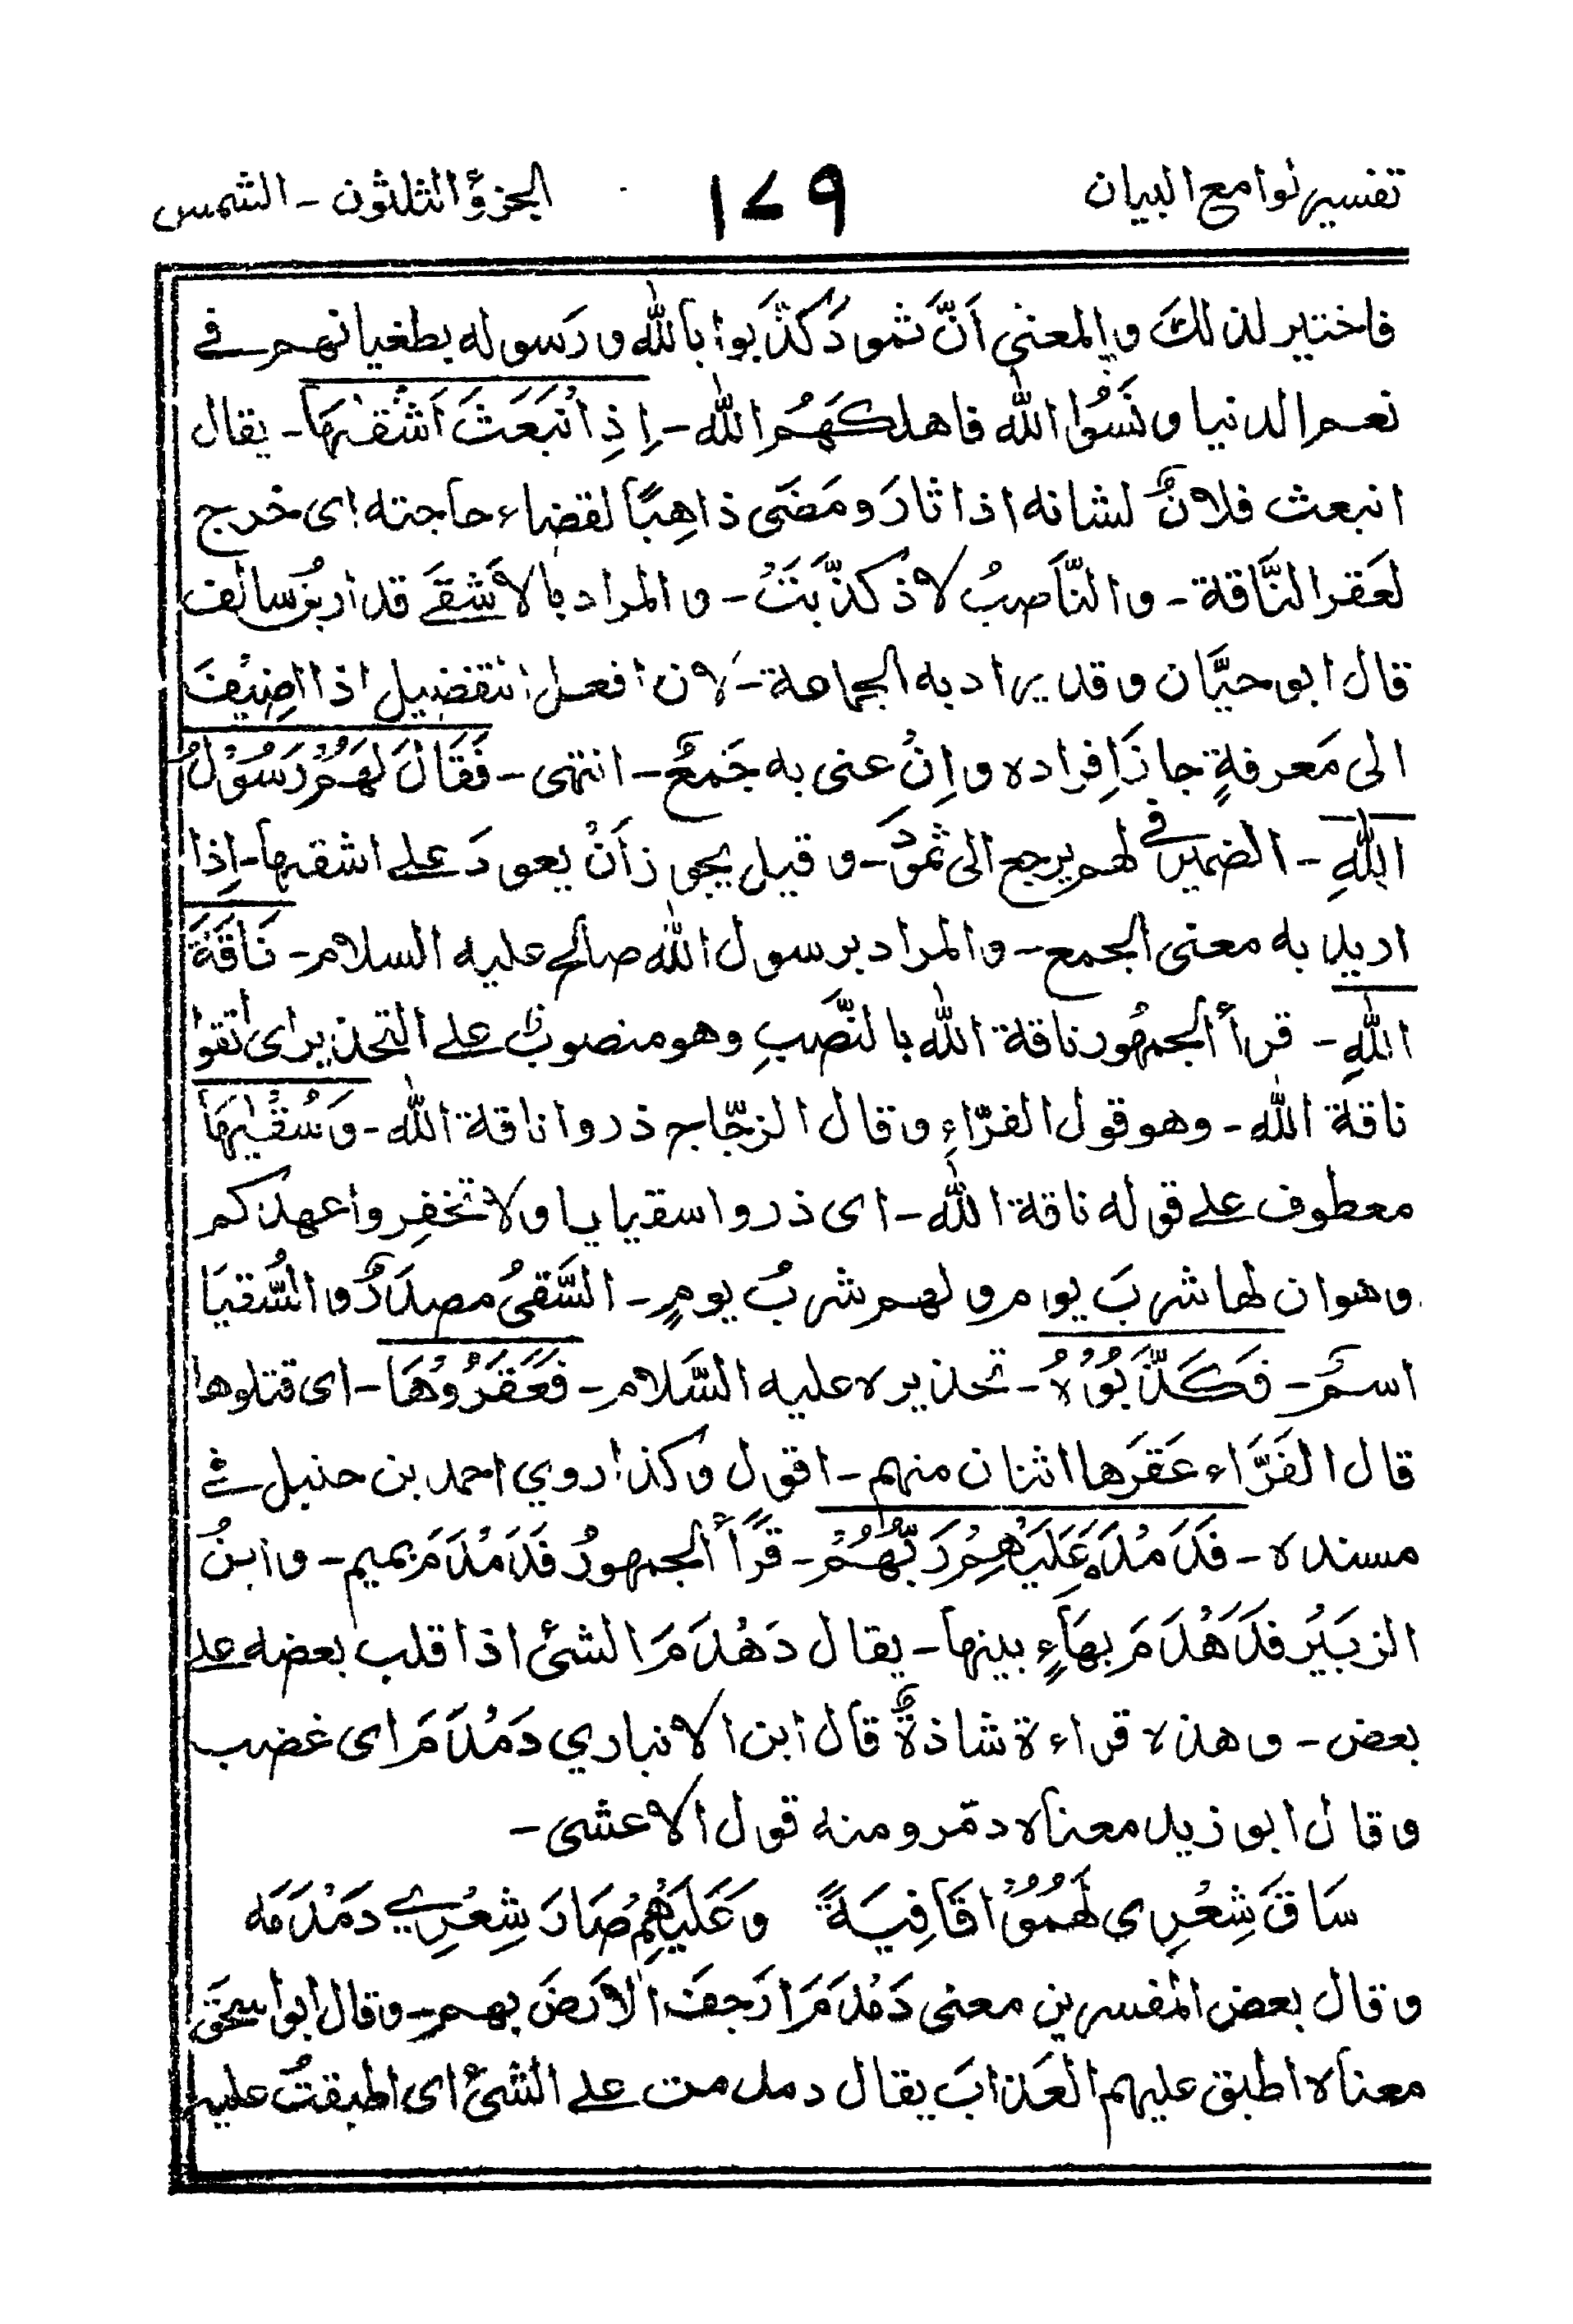 تفسير لوامع البيان ١٧٩ الجزؤ الثلثون - الشمس
فاختير لذلك والمعنى اَنَّ ثمودَ كذَّبوا بالله ورَسوله بطغيانهم في
نعم الدنيا ونَسُوا الله فاهلكهُم الله - اِذِ انْبَعَثَ اَشْقٰىهَا - يقال
انبعث فلانٌ لشانه اذا ثارَ ومَضَى ذاهِبًا لقضاء حاجته اى خرج
لعَقر النَّاقة - والنَّاصبُ لاذ كذَّبَتْ - والمراد بالاَشقَے قدار بنُ سالف
قال ابو حيَّان وقد يراد به الجماعة - لاَن افعل التفضيل اذا اضِيْفَ
الى مَعرفةٍ جازَ اِفراده واِنْ عنى به جَمعٌ - انتهى - فَقَالَ لَهُمْ رَسُوْلُ
اللهِ - الضمير في لهم يرجع الى ثمودَ - وقيل يجوز أنْ يعودَ علے اشقىها - اِذا
اريد به معنى الجمع - والمراد برسول الله صالح عليه السلام - نَاقَةَ
اللهِ - قرأ الجمهُور ناقة الله بالنَّصبِ وهو منصوبٌ علے التحذير اى اتقوا
ناقة الله - وهو قول الفرّاءِ وقال الزجّاج ذروا ناقة الله - وَسُقْيٰهَا
معطوف علے قوله ناقة الله - اى ذروا سقيا يا ولا تخفِروا عهدَكم
وهو ان لها شربَ يوم ولهم شربُ يومٍ - السَّقىُ مصدَرٌ والسُّقيَا
اسمٌ - فَكَذَّبُوْهُ - تحذيره عليه السَّلام - فَعَقَرُوْهَا - اى قتلوها
قال الفَرَّاء عَقَرَها اثنان منهم - اقول وكذا روي احمد بن حنبل في
مسنده - فَدَمْدَمَ عَلَيْهِمْ رَبُّهُمْ - قَرأَ الجمهورُ فَدَمْدَمَ بميم - وابنُ
الزبَيْر فَدَهْدَمَ بهَاءٍ بينها - يقال دَهْدَمَ الشئ اذا قلب بعضه علے
بعض - وهذه قراءة شاذةٌ قال ابن الانباري دَمْدَمَ اى غضب
وقال ابو زيد معناه دمّر ومنه قول الاعشى -
سَاقَ شِعْرِي لَهُمُوْا قَافِيَةً وَعَلَيْهِمْ صَارَ شِعْرِي دَمْدَمَه
وقال بعض المفسرين معنى دَمْدَمَ ارَجفَ الاَرضَ بهم - وقال ابو اسحٰقَ
معناه اطبق عليهم العَذابَ يقال دمدمت علے الشئ اى اطبقتُ عليه